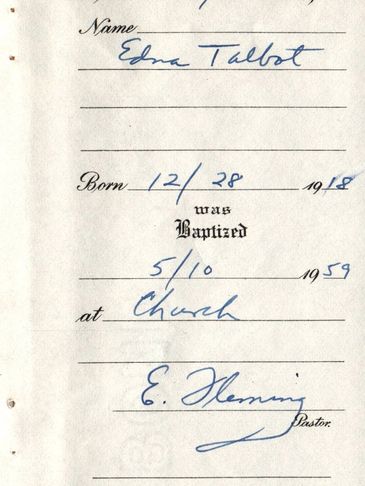 Name
Edna Talbot
Born 12/28 1918
was
Baptized
5/10 1959
at Church
E. Fleming
Pastor.